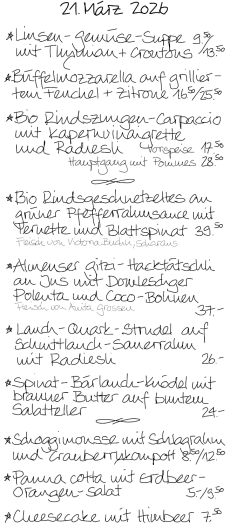 21. März 2026
*Linsen-Gemüse-Suppe 9.50
mit Thymian + Croutons /13.50
*Büffelmozzarella auf grillier-
tem Fenchel + Zitrone 16.50/25.50
*Bio Rindszungen-Carpaccio
mit Kapernvinaigrette
und Radiesli Vorspeise 17.50
Hauptgang mit Pommes 28.50
*Bio Rindsgeschnetzeltes an
grüner Pfefferrahmsauce mit
Pernette und Blattspinat 39.50
Fleisch von Victoria Buchli, Scharans
*Almenser Gitzi-Hacktätschli
an Jus mit Domleschger
Polenta und Coco-Bohnen
Fleisch von Anita Grossen 37.-
*Lauch-Quark-Strudel auf
Schnittlauch-Sauerrahm
mit Radiesli 26.-
*Spinat-Bärlauch-Knödel mit
brauner Butter auf buntem
Salatteller 24.-
*Schoggimousse mit Schlagrahm
und Cranberrykompott 8.50/12.50
*Panna cotta mit Erdbeer-
Orangen-Salat 5.-/9.50
*Cheesecake mit Himbeer 7.50